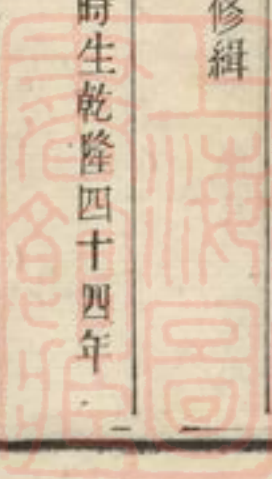 修緝
時生乾隆四十四年